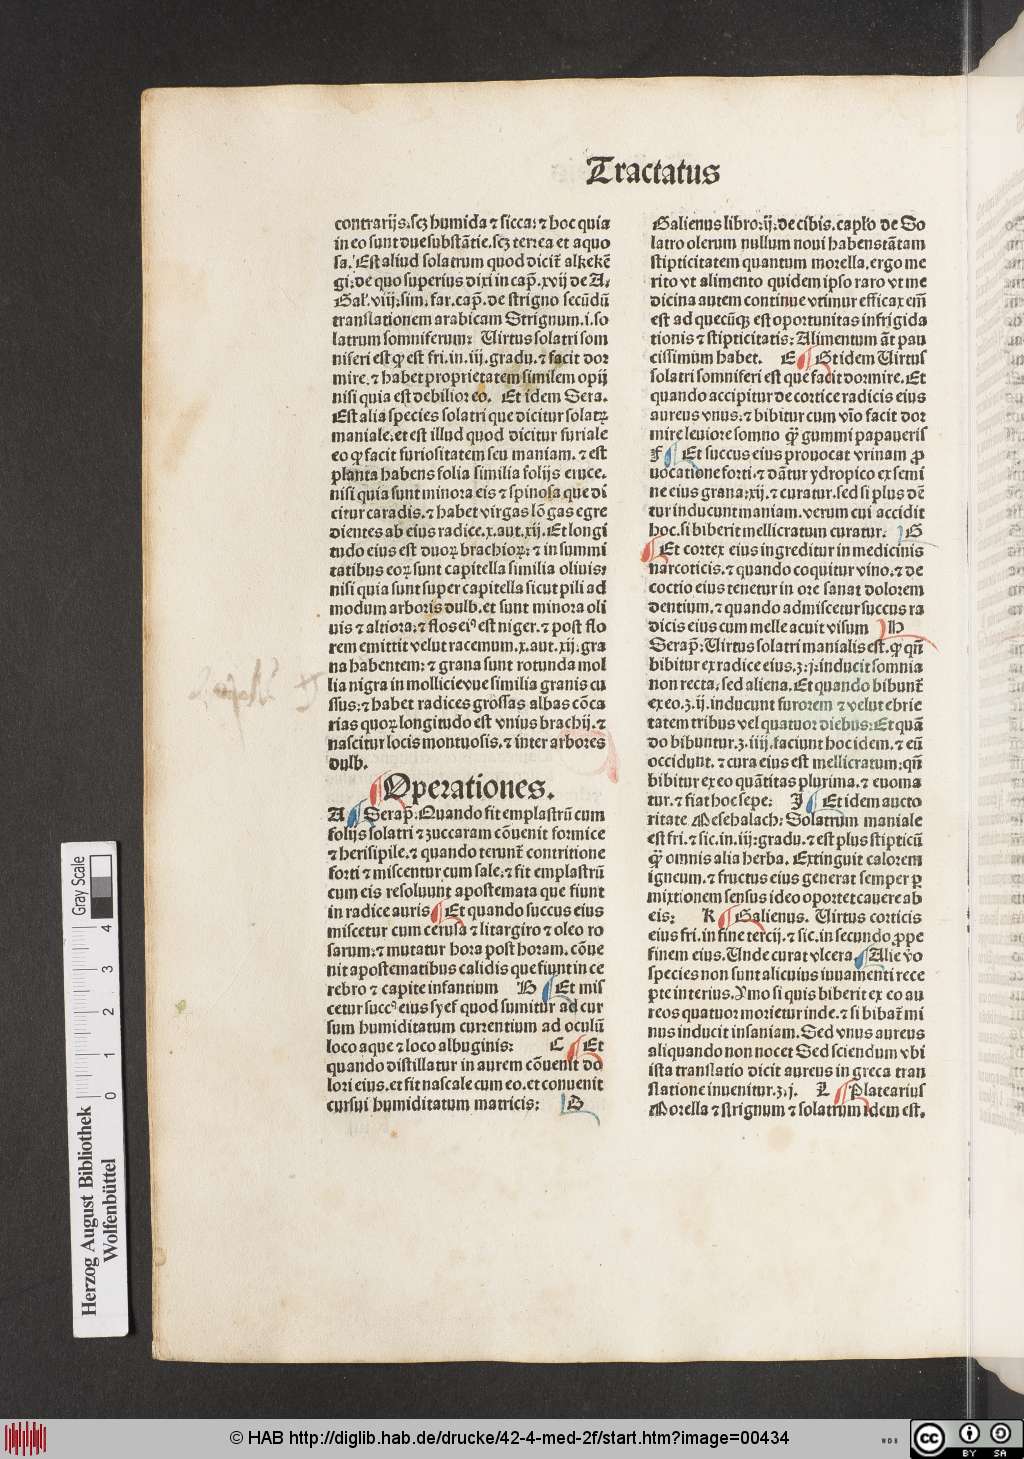 Tractatus
contrarijs.scꝫ humida ⁊ sicca: ⁊ hoc quia
in eo sunt due substātie.scꝫ terrea et aquo
sa. Est aliud solatrum quod dicit̄ alkekē
gi: de quo superius dixi in cap̄. xvij de A.
Gal'. viij: sim. far. cap̄. de strigno secūdū
translationem arabicam Strignum .i. so
latrum somniferum: Uirtus solatri som
niseri est ꝙ est fri. in .iij. gradu. ⁊ facit dor
mire. ⁊ habet proprietatem similem opij
nisi quia est debilior eo. Et idem Sera.
Est alia species solatri que dicitur solatꝝ
maniale. et est illud quod dicitur furiale
eo ꝙ facit furiositatem seu maniam. ⁊ est
planta habens folia similia folijs eruce.
nisi quia sunt minora eis ⁊ spinosa que di
citur caradis. ⁊ habet virgas lōgas egre
dientes ab eius radice. x. aut. xij. Et longi
tudo eius est duoꝝ brachioꝝ: ⁊ in summi
tatibus eoꝝ sunt capitella similia oliuis:
nisi quia sunt super capitella sicut pili ad
modum arboris dulb. et sunt minora oli
uis ⁊ altiora: ⁊ flos eiꝰ est niger. ⁊ post flo
rem emittit velut racemum. x. aut. xij: gra
na habentem: ⁊ grana sunt rotunda mol
lia nigra in mollicie vue similia granis cu
ssus: ⁊ habet radices grossas albas cōca
rias quoꝝ longitudo est vnius brachij. ⁊
nascitur locis montuosis. ⁊ inter arbores
dulb.
Operationes.
A Serap̄. Quando fit emplastrū cum
folijs solatri ⁊ zuccaram cōuenit formice
⁊ herisipile. ⁊ quando terunt̄ contritione
forti ⁊ miscentur cum sale. ⁊ fit emplastrū
cum eis resoluunt apostemata que fiunt
in radice auris. Et quando succus eius
miscetur cum cerusa ⁊ litargiro ⁊ oleo ro
sarum: ⁊ mutatur hora post horam. cōue
nit apostematibus calidis que fiunt in ce
rebro ⁊ capite infantium B Et mis
cetur succꝰ eius syef quod sumitur ad cur
sum humiditatum currentium ad oculū
loco aque ⁊ loco albuginis: C Et
quando distillatur in aurem cōuenit do
lori eius. et fit nascale cum eo. et conuenit
cursui humiditatum matricis: D
Galienus libro: ij: de cibis. cap̄lo de So
latro olerum nullum noui habens tātam
stipticitatem quantum morella. ergo me
rito vt alimento quidem ipso raro vt me
dicina autem continue vtimur efficax em̄
est ad quecūqꝫ est oportunitas infrigida
tionis ⁊ stipticitatis: Alimentum āt pau
cissimum habet. E Et idem Uirtus
solatri somniferi est que facit dormire. Et
quando accipitur de cortice radicis eius
aureus vnus: ⁊ bibitur cum vīo facit dor
mire leuiore somno ꝙ̄ gummi papaueris
F Et succus eius prouocat vrinam ꝓ
uocatione forti. ⁊ dātur ydropico ex semi
ne eius grana: xij. ⁊ curatur. sed si plus dē
tur inducunt maniam. verum cui accidit
hoc. si biberit mellicratum curatur. G
Et cortex eius ingreditur in medicinis
narcoticis. ⁊ quando coquitur vino. ⁊ de
coctio eius tenetur in ore sanat dolorem
dentium. ⁊ quando admiscetur succus ra
dicis eius cum melle acuit visum H
Serap̄: Uirtus solatri manialis est. ꝙ qn̄
bibitur ex radice eius. ʒ: j: inducit somnia
non recta: sed aliena. Et quando bibunt̄
ex eo. ʒ. ij. inducunt furorem ⁊ velut ebrie
tatem tribus vel quatuor diebus: Et quā
do bibuntur. ʒ. iiij. faciunt hoc idem. ⁊ eū
occidunt. ⁊ cura eius est mellicratum: qn̄
bibitur ex eo quātitas plurima. ⁊ euoma
tur. ⁊ fiat hoc sepe: J Et idem aucto
ritate Mesehalach: Solatrum maniale
est fri. ⁊ sic. in. iij: gradu. ⁊ est plus stipticū
ꝙ̄ omnis alia herba. Extinguit calorem
igneum. ⁊ fructus eius generat semper ꝑ
mixtionem sensus ideo oportet cauere ab
eis: K Galienus. Uirtus corticis
eius fri. in fine tercij. ⁊ sic. in secundo ꝓpe
finem eius. Unde curat vlcera. Alie v̄o
species non sunt alicuius iuuamenti rece
pte interius. Ymo si quis biberit ex eo au
reos quatuor morietur inde. ⁊ si bibat̄ mi
nus inducit insaniam. Sed vnus aureus
aliquando non nocet Sed sciendum vbi
ista translatio dicit aureus in greca tran
slatione inuenitur. ʒ. j. L Platearius
Morella ⁊ strignum ⁊ solatrum idem est.
Gray Scale
0 1 2 3 4
Herzog August Bibliothek
Wolfenbüttel
© HAB http://diglib.hab.de/drucke/42-4-med-2f/start.htm?image=00434
WDB
cc BY SA